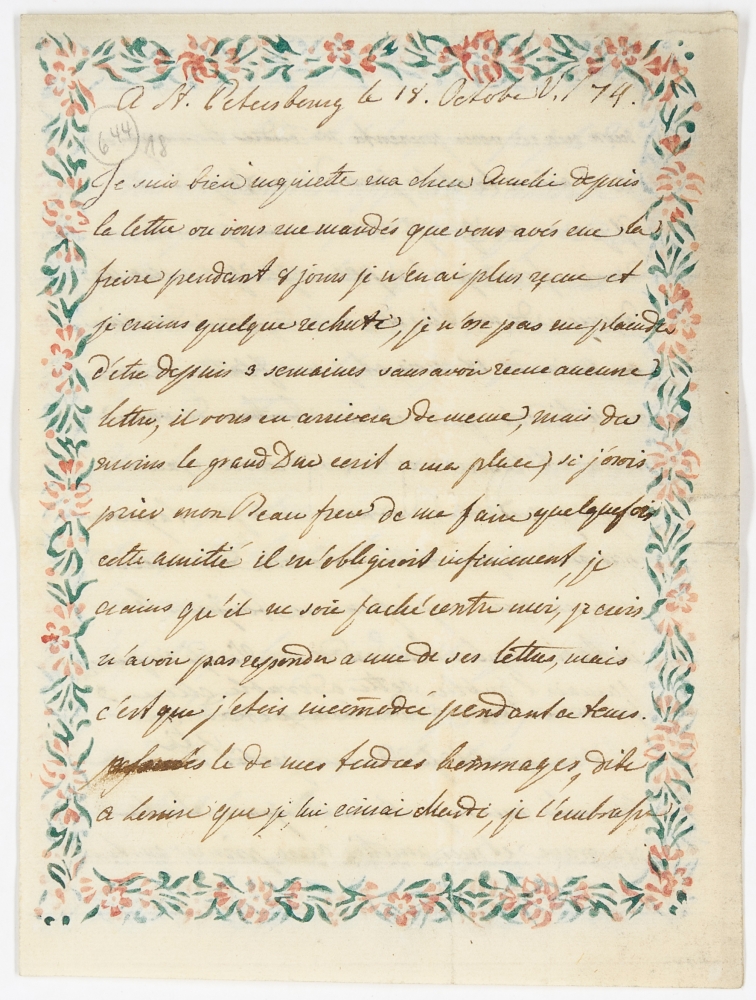 A St. Petersbourg le 18. Octobr V. S. 74.
644
18
Je suis bien inquiette ma chere Amelie depuis
la lettre ou vous me mandés que vous avés eue la
fievre pendant 8 jours je n'en ai plus reçue et
je crains quelque rechute, je n'ose pas me plaindre
d'être depuis 3 semaines sans avoir reçue aucune
lettre, il vous en arrivera de meme, mais du
moins le grand Duc ecrit a ma place, si j'osois
prier mon Beau frere de me faire quelquefois
cette amitié il m'obligeroit infiniment, je
crains qu'il ne soie faché contre moi, je crois
n'avoir pas repondu a une de ses lettres, mais
c'est que j'etois incomodée pendant ce tems.
le de mes tendres hommages, dite
a Louise que je lui ecrirai Mardi, je l'embrasse